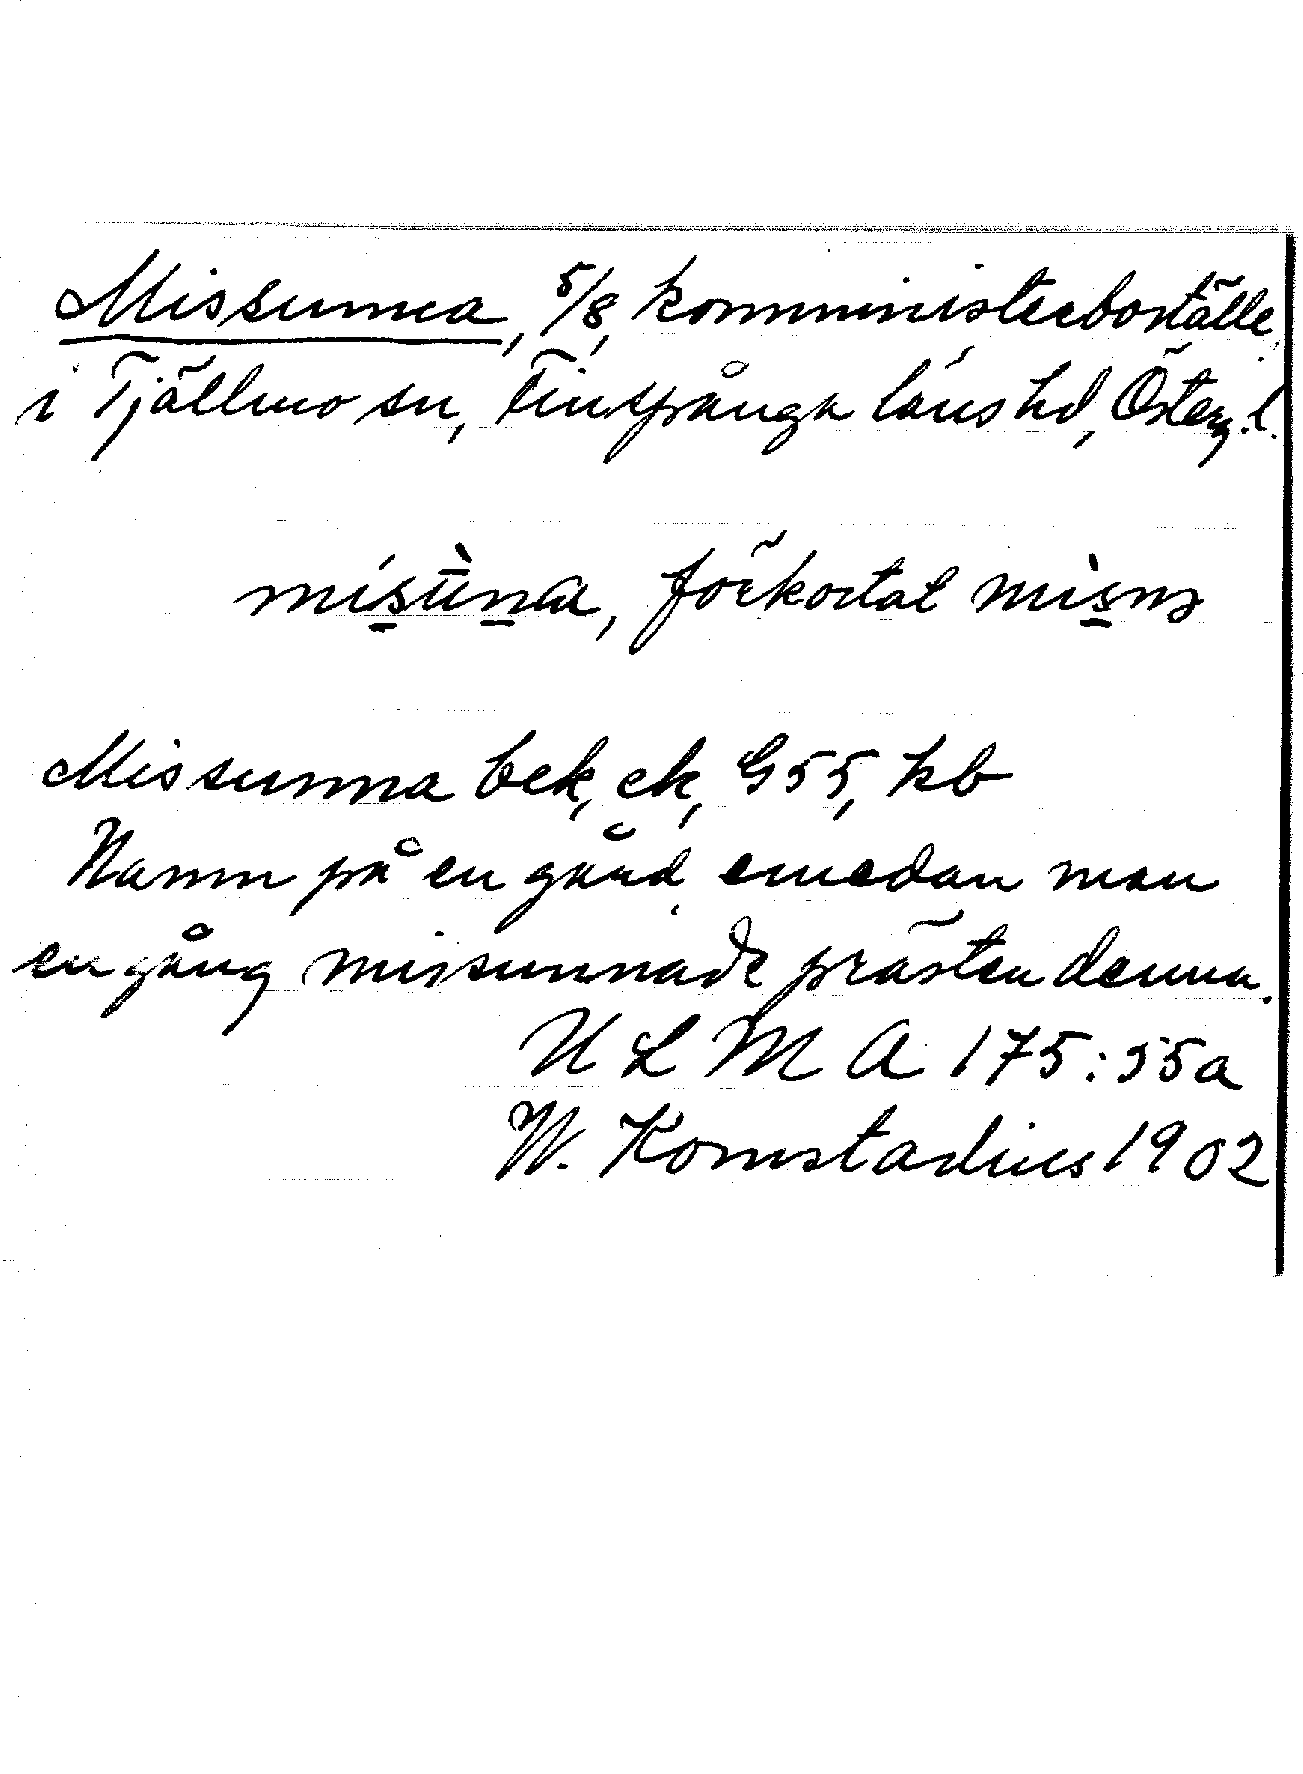 Missunna, 5/8, komministerboställe
i Tjällmo sn, Finspånga läns hd, Österg. l.
misùna, förkortat
Missunna bek, ek, G55, kb
Namn på en gård emedan man
en gång missunnade prästen denna.
U L M A 175:55a
W. Komstadius 1902